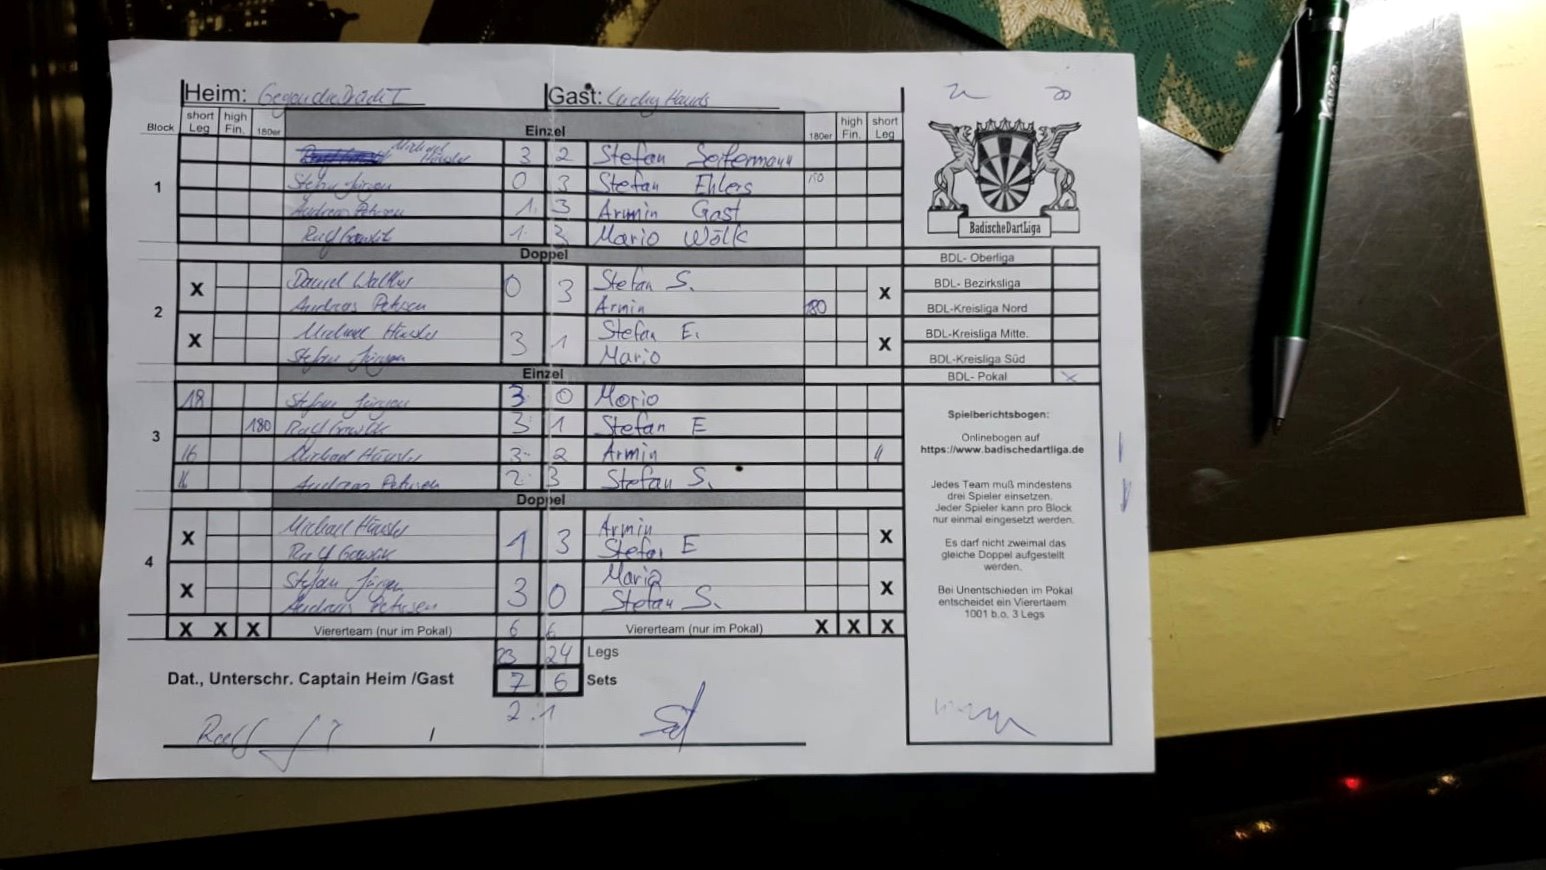 Heim: Gegen die Dracht I Gast: Lucky Hands
Block short Leg high Fin. 180er Einzel 180er high Fin. short Leg
1
Michael Häusler 3 2 Stefan Seifermann
Stefan Jürgen 0 3 Stefan Ehlers
Andreas Petersen 1 3 Armin Gast
Ralf 1 3 Mario Wölk
Doppel
2
X Daniel 0 3 Stefan S. X
Andreas Petersen Armin 180
X Michael Häusler 3 1 Stefan E. X
Stefan Jürgen Mario
Einzel
3
18 Stefan Jürgen 3 0 Mario
180 Ralf 3 1 Stefan E
16 Michael Häusler 3 2 Armin
Andreas Petersen 2 3 Stefan S.
Doppel
4
X Michael Häusler 1 3 Armin X
Ralf Stefan E
X Stefan Jürgen 3 0 Mario X
Andreas Petersen Stefan S.
X X X Vierterteam (nur im Pokal) 6 6 Vierterteam (nur im Pokal) X X X
23 24 Legs
Dat., Unterschr. Captain Heim /Gast 7 6 Sets
2:1
BadischeDartLiga
BDL- Oberliga
BDL- Bezirksliga
BDL-Kreisliga Nord
BDL-Kreisliga Mitte.
BDL-Kreisliga Süd
BDL- Pokal X
Spielberichtsbogen:
Onlinebogen auf
https://www.badischedartliga.de
Jedes Team muß mindestens
drei Spieler einsetzen.
Jeder Spieler kann pro Block
nur einmal eingesetzt werden.
Es darf nicht zweimal das
gleiche Doppel aufgestellt
werden.
Bei Unentschieden im Pokal
entscheidet ein Vierertaem
1001 b.o. 3 Legs